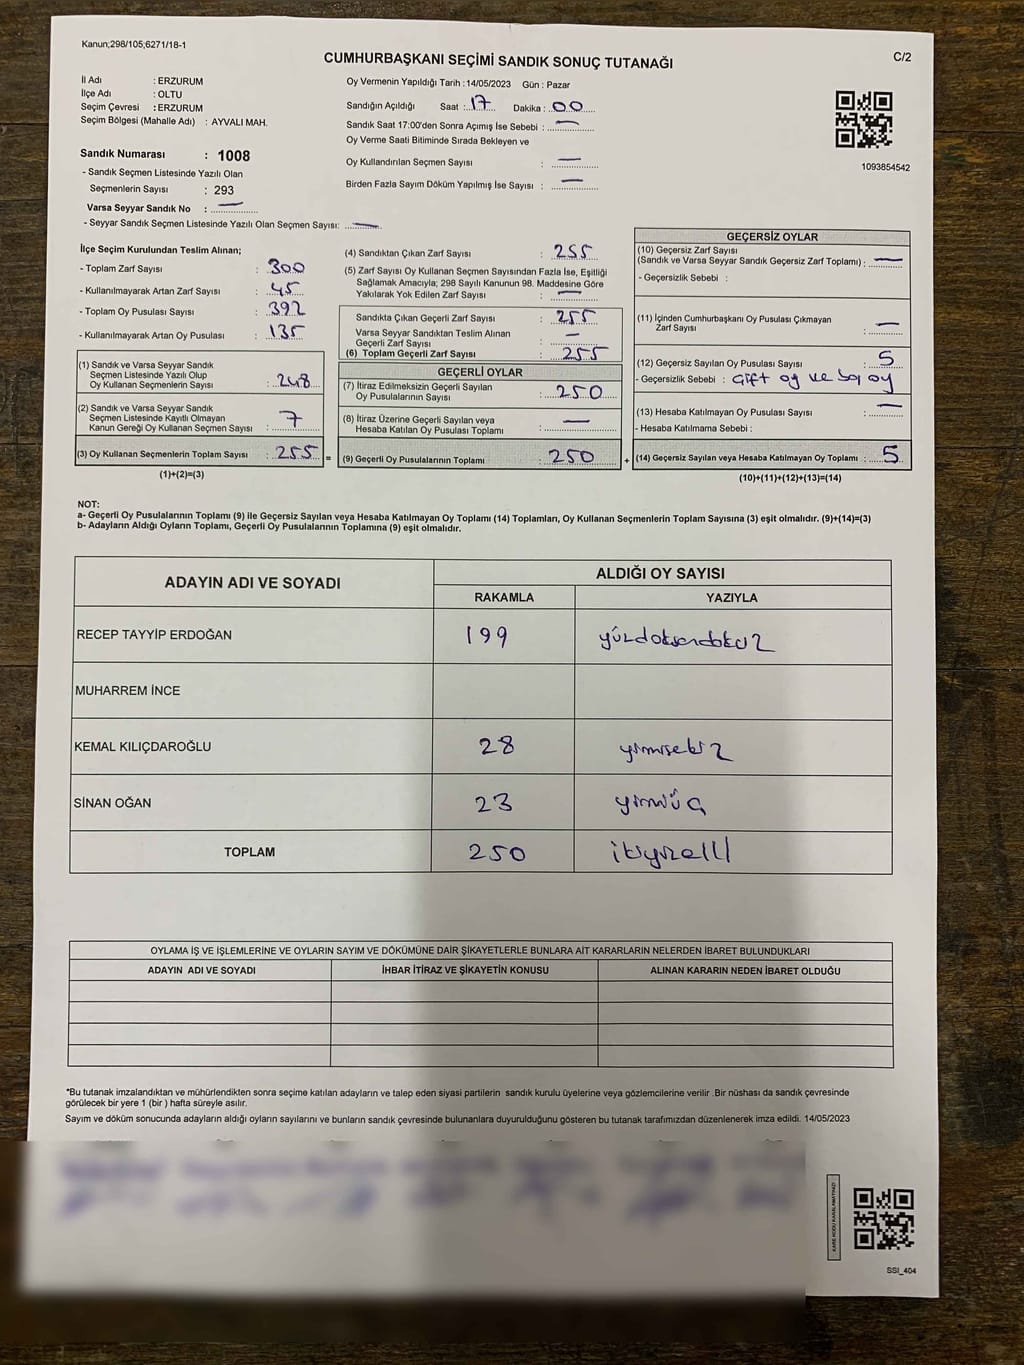 Kanun;298/105;6271/18-1
CUMHURBAŞKANI SEÇİMİ SANDIK SONUÇ TUTANAĞI
C/2
İl Adı : ERZURUM
İlçe Adı : OLTU
Seçim Çevresi : ERZURUM
Seçim Bölgesi (Mahalle Adı) : AYVALI MAH.
Sandık Numarası : 1008
- Sandık Seçmen Listesinde Yazılı Olan
Seçmenlerin Sayısı : 293
Varsa Seyyar Sandık No : —
- Seyyar Sandık Seçmen Listesinde Yazılı Olan Seçmen Sayısı: —
Oy Vermenin Yapıldığı Tarih : 14/05/2023 Gün : Pazar
Sandığın Açıldığı Saat : 17 Dakika : 00
Sandık Saat 17:00'den Sonra Açımış İse Sebebi : —
Oy Verme Saati Bitiminde Sırada Bekleyen ve
Oy Kullandırılan Seçmen Sayısı : —
Birden Fazla Sayım Döküm Yapılmış İse Sayısı : —
1093854542
İlçe Seçim Kurulundan Teslim Alınan;
- Toplam Zarf Sayısı : 300
- Kullanılmayarak Artan Zarf Sayısı : 45
- Toplam Oy Pusulası Sayısı : 392
- Kullanılmayarak Artan Oy Pusulası : 135
(1) Sandık ve Varsa Seyyar Sandık
Seçmen Listesinde Yazılı Olup
Oy Kullanan Seçmenlerin Sayısı : 248
(2) Sandık ve Varsa Seyyar Sandık
Seçmen Listesinde Kayıtlı Olmayan
Kanun Gereği Oy Kullanan Seçmen Sayısı : 7
(3) Oy Kullanan Seçmenlerin Toplam Sayısı : 255 =
(1)+(2)=(3)
(4) Sandıktan Çıkan Zarf Sayısı : 255
(5) Zarf Sayısı Oy Kullanan Seçmen Sayısından Fazla İse, Eşitliği
Sağlamak Amacıyla; 298 Sayılı Kanunun 98. Maddesine Göre
Yakılarak Yok Edilen Zarf Sayısı : —
Sandıkta Çıkan Geçerli Zarf Sayısı : 255
Varsa Seyyar Sandıktan Teslim Alınan
Geçerli Zarf Sayısı : —
(6) Toplam Geçerli Zarf Sayısı : 255
GEÇERLİ OYLAR
(7) İtiraz Edilmeksizin Geçerli Sayılan
Oy Pusulalarının Sayısı : 250
(8) İtiraz Üzerine Geçerli Sayılan veya
Hesaba Katılan Oy Pusulası Toplamı : —
(9) Geçerli Oy Pusulalarının Toplamı : 250 +
GEÇERSİZ OYLAR
(10) Geçersiz Zarf Sayısı
(Sandık ve Varsa Seyyar Sandık Geçersiz Zarf Toplamı) : —
- Geçersizlik Sebebi :
(11) İçinden Cumhurbaşkanı Oy Pusulası Çıkmayan
Zarf Sayısı : —
(12) Geçersiz Sayılan Oy Pusulası Sayısı : 5
- Geçersizlik Sebebi : Çift oy ve boş oy
(13) Hesaba Katılmayan Oy Pusulası Sayısı : —
- Hesaba Katılmama Sebebi :
(14) Geçersiz Sayılan veya Hesaba Katılmayan Oy Toplamı : 5
(10)+(11)+(12)+(13)=(14)
NOT:
a- Geçerli Oy Pusulalarının Toplamı (9) ile Geçersiz Sayılan veya Hesaba Katılmayan Oy Toplamı (14) Toplamları, Oy Kullanan Seçmenlerin Toplam Sayısına (3) eşit olmalıdır. (9)+(14)=(3)
b- Adayların Aldığı Oyların Toplamı, Geçerli Oy Pusulalarının Toplamına (9) eşit olmalıdır.
ADAYIN ADI VE SOYADI
ALDIĞI OY SAYISI
RAKAMLA YAZIYLA
RECEP TAYYİP ERDOĞAN 199 yüzdoksandokuz
MUHARREM İNCE
KEMAL KILIÇDAROĞLU 28 yirmisekiz
SİNAN OĞAN 23 yirmiüç
TOPLAM 250 ikiyüzelli
OYLAMA İŞ VE İŞLEMLERİNE VE OYLARIN SAYIM VE DÖKÜMÜNE DAİR ŞİKAYETLERLE BUNLARA AİT KARARLARIN NELERDEN İBARET BULUNDUKLARI
ADAYIN ADI VE SOYADI İHBAR İTİRAZ VE ŞİKAYETİN KONUSU ALINAN KARARIN NEDEN İBARET OLDUĞU
*Bu tutanak imzalandıktan ve mühürlendikten sonra seçime katılan adayların ve talep eden siyasi partilerin sandık kurulu üyelerine veya gözlemcilerine verilir .Bir nüshası da sandık çevresinde
görülecek bir yere 1 (bir ) hafta süreyle asılır.
Sayım ve döküm sonucunda adayların aldığı oyların sayılarını ve bunların sandık çevresinde bulunanlara duyurulduğunu gösteren bu tutanak tarafımızdan düzenlenerek imza edildi. 14/05/2023
KARE KODU KARALAMAYINIZ!
SSI_404